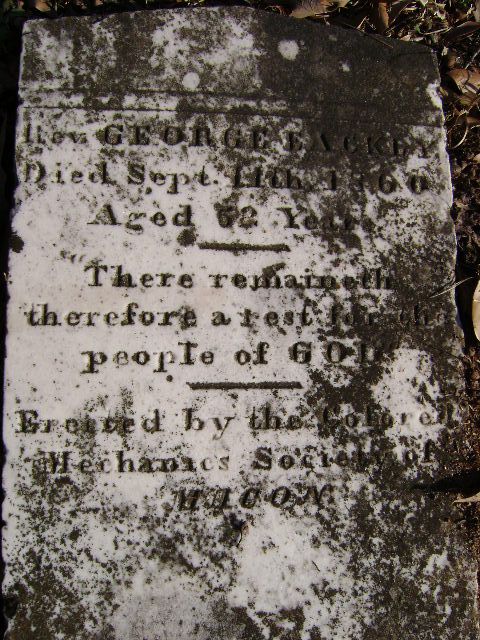 Rev. GEORGE LACKEY
Died Sept. 11th, 1860
Aged 62 Years
"There remaineth
therefore a rest for the
people of GOD
Erected by the Colored
Mechanics Society of
MACON